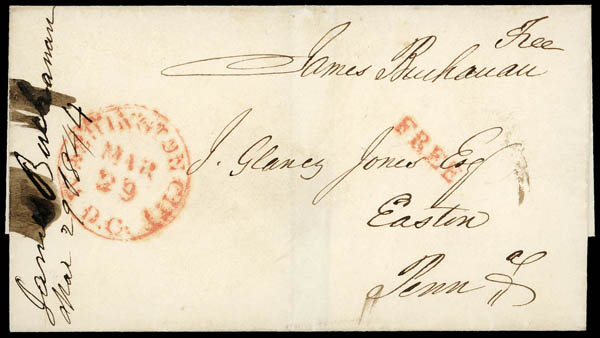 Free
James Buchanan
FREE
J. Glancy Jones Esq
Easton
Penn a
WASHINGTON CITY
MAR
29
D.C.
James Buchanan
Mar 29 1844